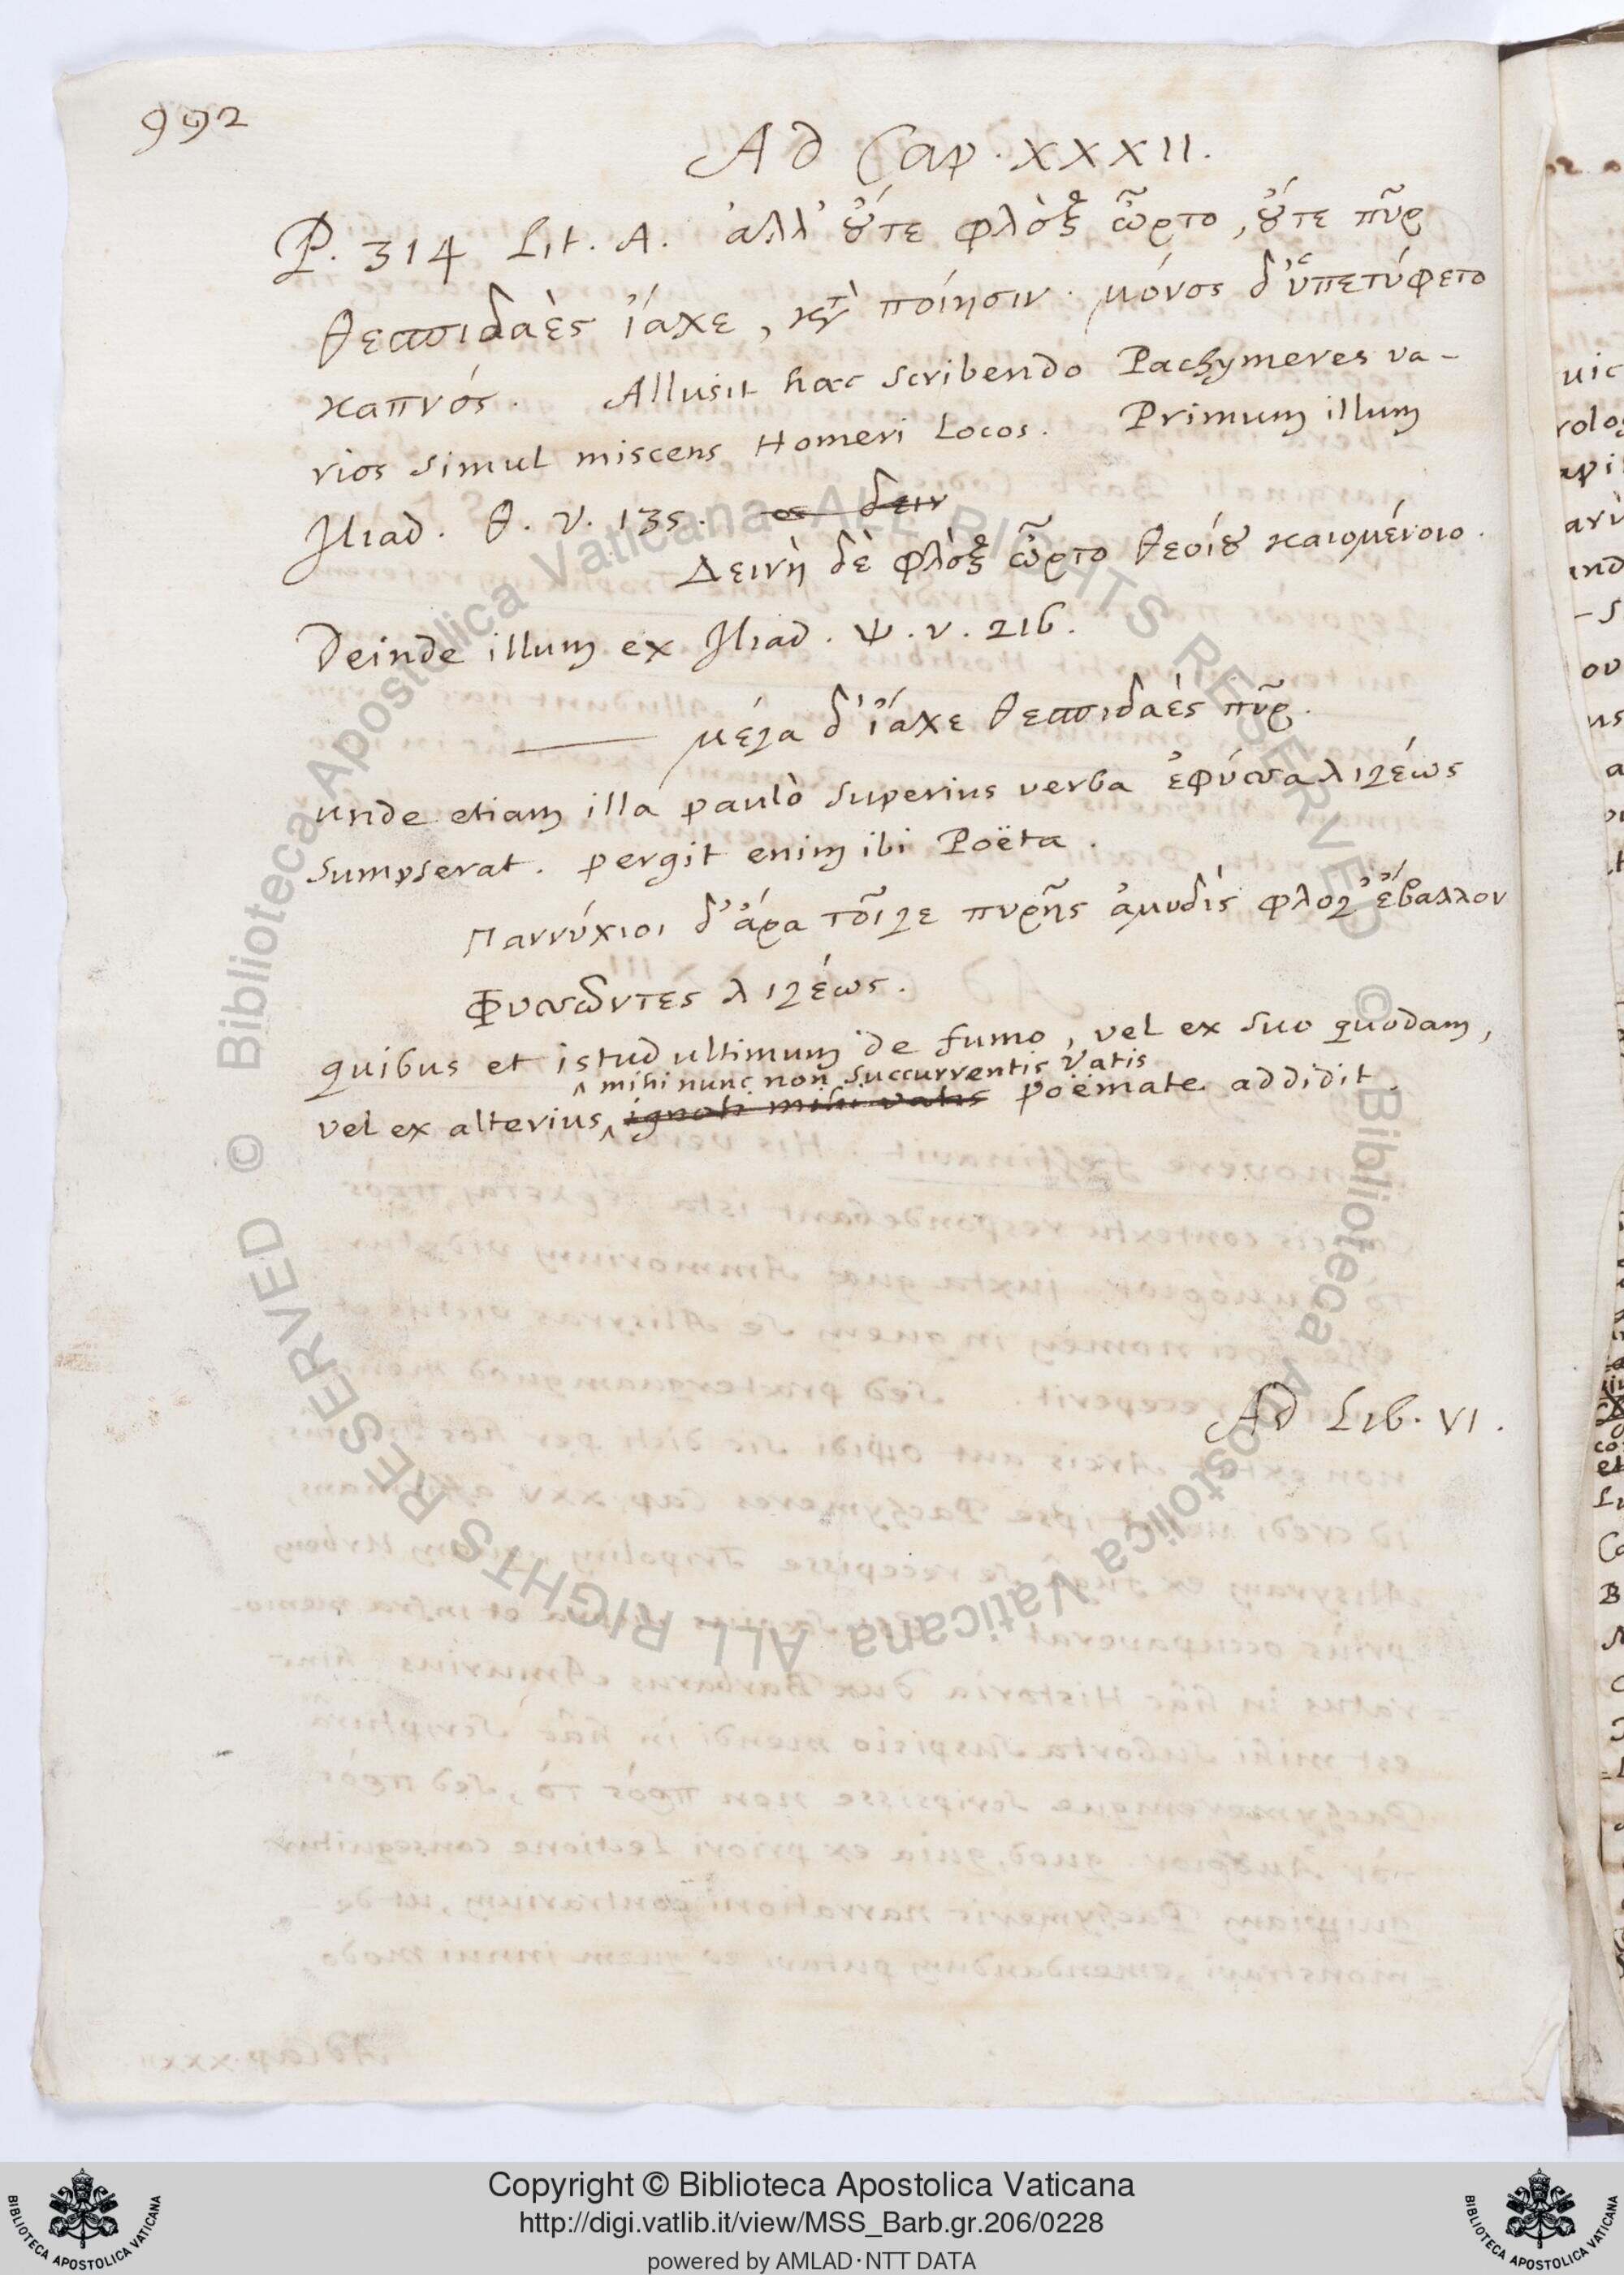 992
Ad Cap. XXXII.
P. 314 Lit. A. ἀλλ' οὔτε φλὸξ ὦρτο, οὔτε πῦρ
θεσπιδαὲς ἴαχε, κατὰ ποίησιν. μόνος δ' ὑπετύφετο
καπνός. Allusit hac scribendo Pachymeres va-
rios simul miscens Homeri Locos. Primum illum
Iliad. θ. v. 135. δειν
Δεινὴ δὲ φλὸξ ὦρτο θεείου καιομένοιο.
Deinde illum ex Iliad. ψ. v. 216.
μέγα δ' ἴαχε θεσπιδαὲς πῦρ.
unde etiam illa paulò superius verba ἐφύσσα λιγέως
sumpserat. pergit enim ibi Poëta.
Παννύχιοι δ' ἄρα τοῖγε πυρῆς ἀμυδὶς φλόγ' ἔβαλλον
Φυσῶντες λιγέως.
quibus et istud ultimum de fumo, vel ex suo quodam,
mihi nunc non succurrentis Vatis
vel ex alterius ignoti mihi vatis poëmate addidit.
Ad Lib. VI.
© Biblioteca Apostolica Vaticana ALL RIGHTS RESERVED
© Biblioteca Apostolica Vaticana ALL RIGHTS RESERVED
BIBLIOTECA APOSTOLICA VATICANA
Copyright © Biblioteca Apostolica Vaticana
http://digi.vatlib.it/view/MSS_Barb.gr.206/0228
powered by AMLAD·NTT DATA
BIBLIOTECA APOSTOLICA VATICANA